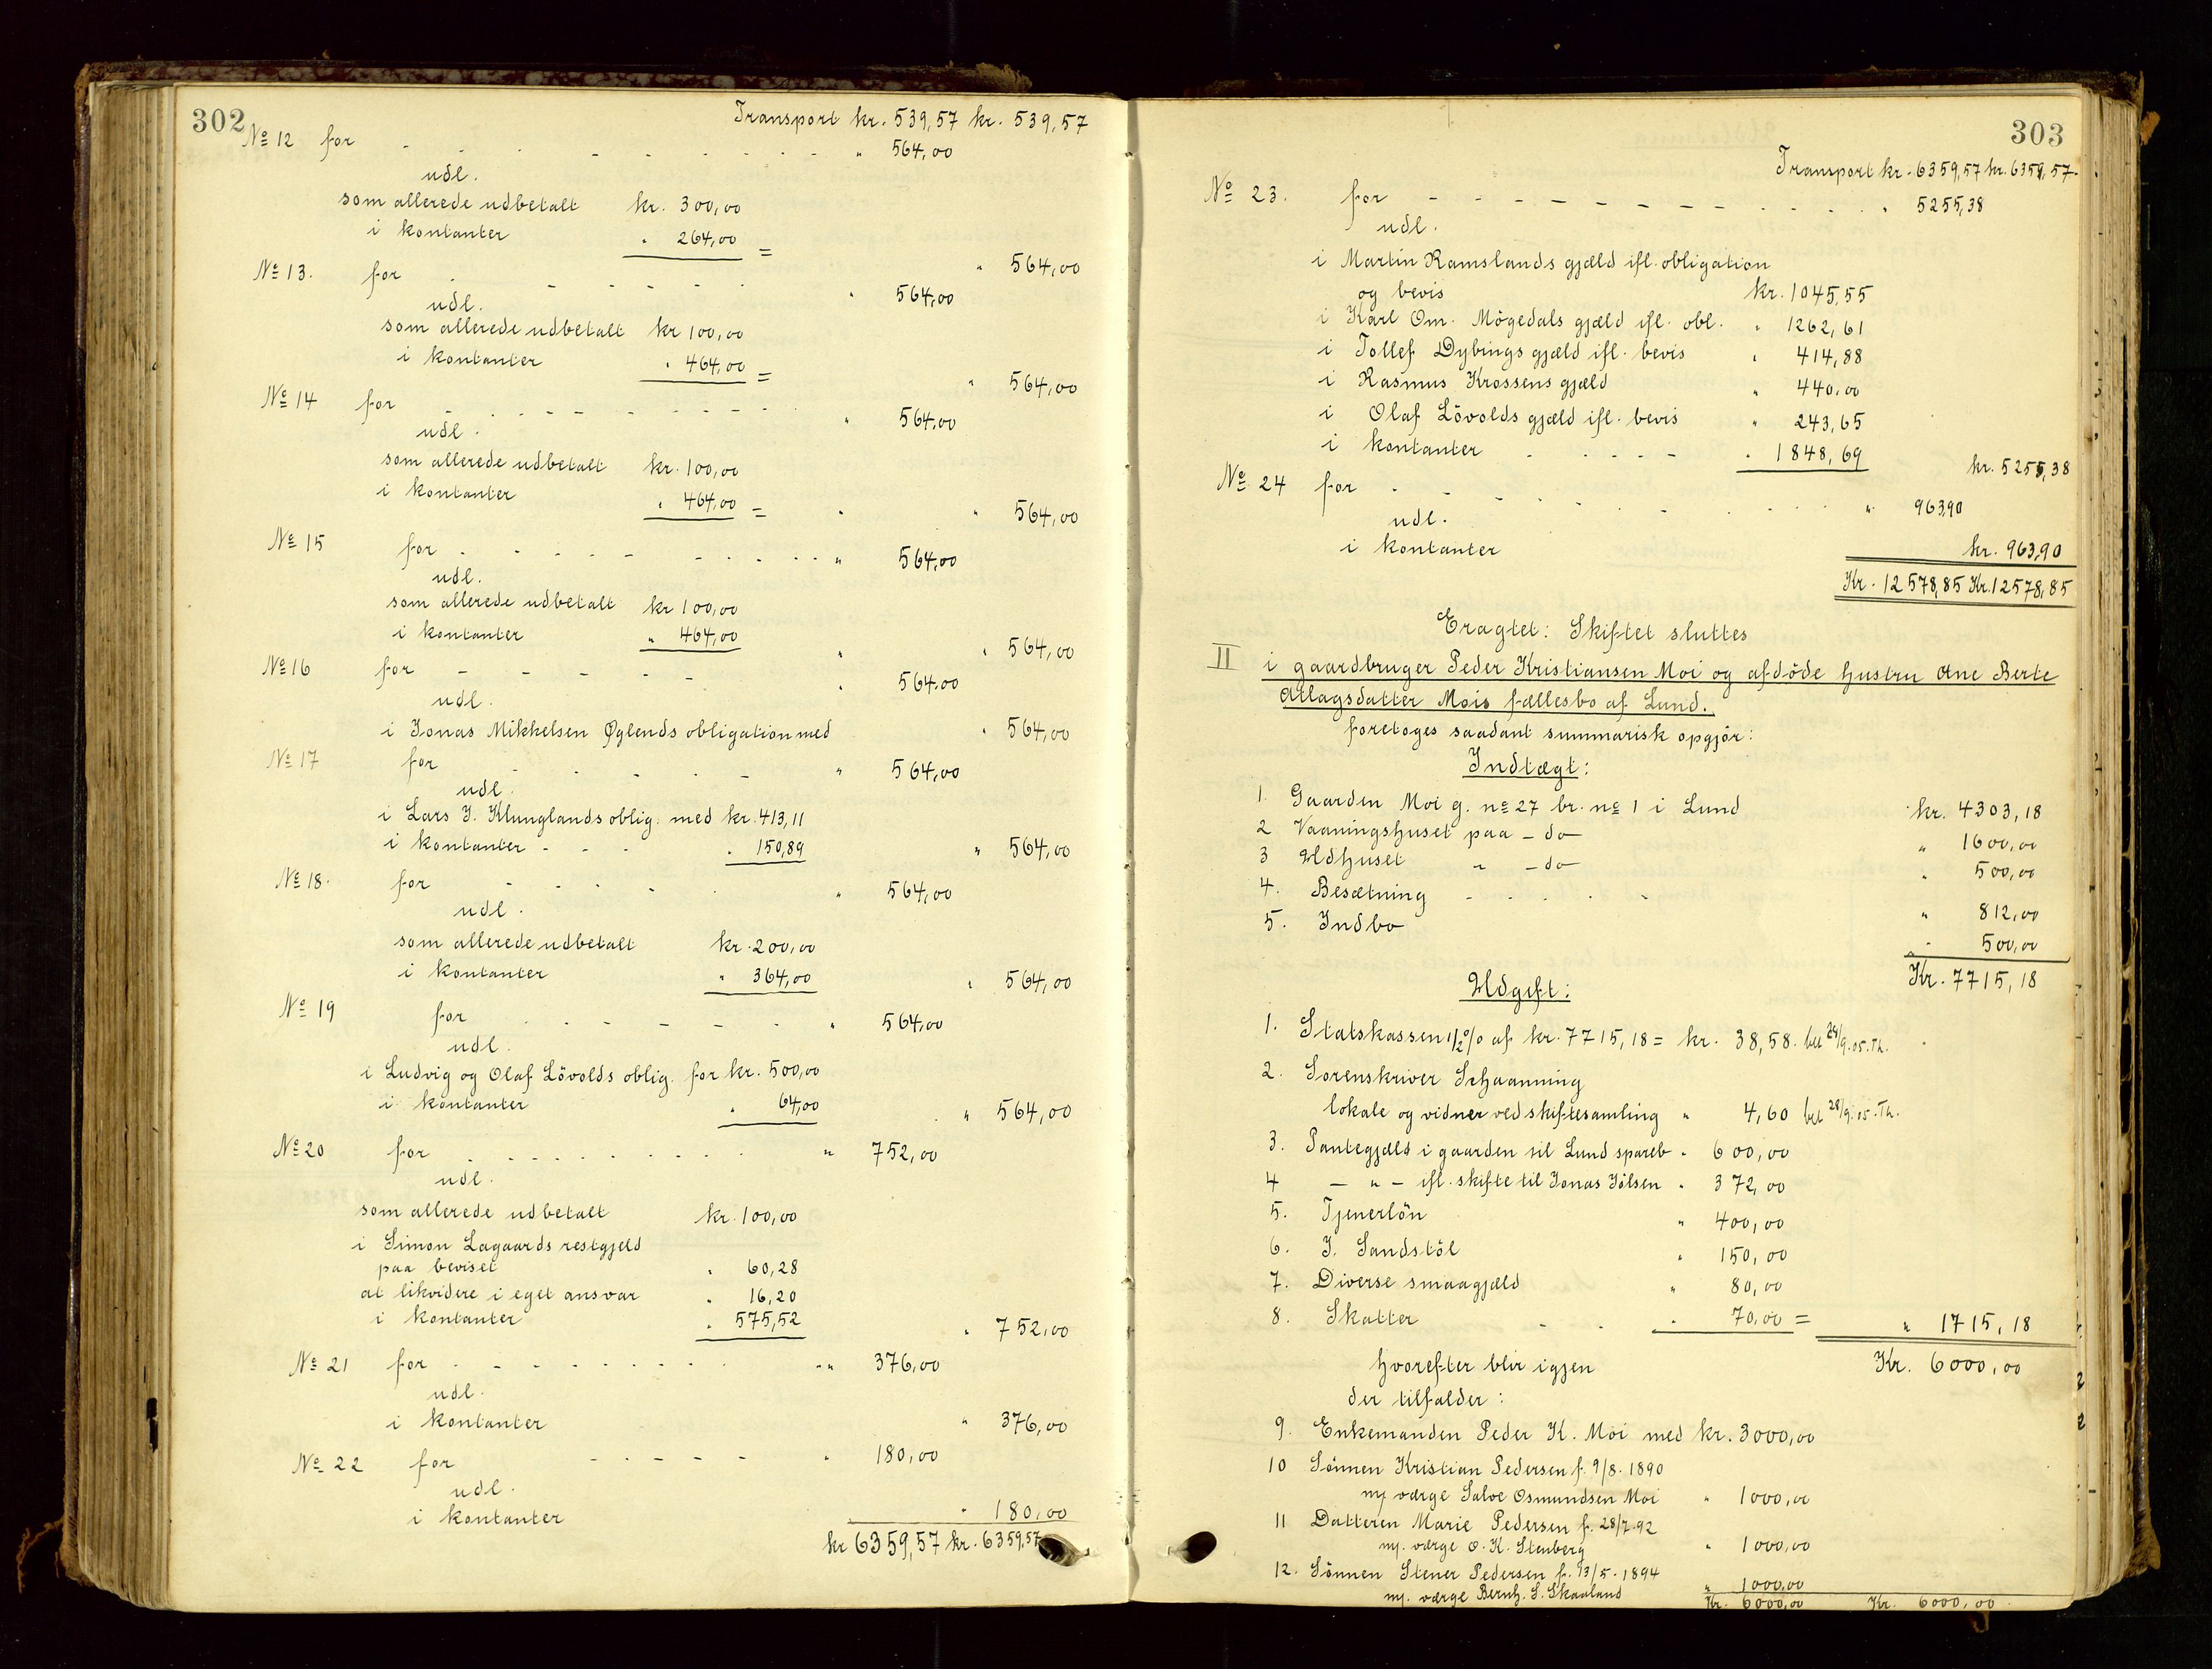 302
Transport kr. 539,57 kr. 539,57
No 12 for - - - - - - - - - " 564,00
udl.
som allerede udbetalt kr. 300,00
i kontanter " 264,00 =
" 564,00
No 13. for - - - - - - " 564,00
udl.
som allerede udbetalt kr 100,00
i kontanter " 464,00 =
" 564,00
No 14 for - - - - - - - - " 564,00
udl.
som allerede udbetalt kr. 100,00
i kontanter " 464,00 = " " 564,00
No 15 for - - - - - - - - - " 564,00
udl.
som allerede udbetalt kr 100,00
i kontanter " 464,00
" " 564,00
No 16 for - - - - - " 564,00
udl.
i Jonas Mikkelsen Øglends obligation med " 564,00
No 17 for - - - - - " 564,00
udl.
i Lars J. Klunglands oblig. med kr. 413,11
i kontanter - - - " 150,89 " 564,00
No 18. for - - - - - " 564,00
udl.
som allerede udbetalt kr. 200,00
i kontanter " 364,00 " 564,00
No 19 for - - - - - - " 564,00
udl.
i Ludvig og Olaf Lövolds oblig. for kr. 500,00
i kontanter " 64,00 " 564,00
No 20 for - - - - - - - - - " 752,00
udl.
som allerede udbetalt kr. 100,00
i Simon Lagaards restgjeld
paa beviset " 60,28
at likvidere i eget ansvar " 16,20
i kontanter " 575,52
" 752,00
No 21 for - - - - - - - - " 376,00
udl.
i kontanter " 376,00
No 22 for - - - - - " 180,00
udl.
i kontanter " 180,00
kr 6359,57 kr. 6359,57
303
Transport kr. 6359,57 kr. 6359,57
No 23. for - - - - - - - - - - - - " 5255,38
udl.
i Martin Ramslands gjæld ifl. obligation
og bevis kr. 1045,55
i Karl Om. Mögedals gjæld ifl. obl. " 1262,61
i Tollef Dybings gjæld ifl. bevis " 414,88
i Rasmus Krossens gjæld " 440,00
i Olaf Lövolds gjæld ifl. bevis " 243,65
i kontanter - - - - " 1848,69
kr. 5255,38
No 24 for - - - - - - - - - - " 963,90
udl.
i kontanter kr. 963,90
Kr. 12578,85 Kr. 12578,85
Eragtet: Skiftet sluttes
II i gaardbruger Peder Kristiansen Moi og afdöde hustru Ane Berte
Atlagsdatter Mois fællesbo af Lund.
foretoges saadant summarisk opgjør:
Indtægt:
1. Gaarden Moi g. no 27 br. no 1 i Lund kr. 4303,18
2 Vaaningshuset paa - do - " 1600,00
3 Udhuset " - do - " 500,00
4. Besætning - - - - - " 812,00
5. Indbo " 500,00
Kr. 7715,18
Udgift:
1. Statskassen 1/2 % af kr. 7715,18 = kr. 38,58. bet 24/9.05. Th.
2. Sorenskriver Schaanning
lokale og vidner ved skiftesamling " 4,60 bet 28/9.05. Th.
3. Pantegjæld i gaarden til Lund spareb " 600,00
4 - " - ifl. skifte til Jonas Jölsen " 372,00
5. Tjenerlön " 400,00
6. J. Sandstöl " 150,00
7. Diverse smaagjæld " 80,00
8. Skatter - - " 70,00 = " 1715,18
hvorefter blir igjen Kr. 6000,00
der tilfalder:
9. Enkemanden Peder K. Moi med kr. 3000,00
10 Sönnen Kristian Pedersen f. 9/8. 1890
m/ værge Salve Osmundsen Moi " 1000,00
11 Datteren Marie Pedersen f. 28/7.92
m/. værge O. K. Stenberg " 1000,00
12. Sönnen Stener Pedersen f. 13/5. 1894
m/. værge Bernh. S. Skaaland " 1000,00
Kr. 6000,00 Kr. 6000,00